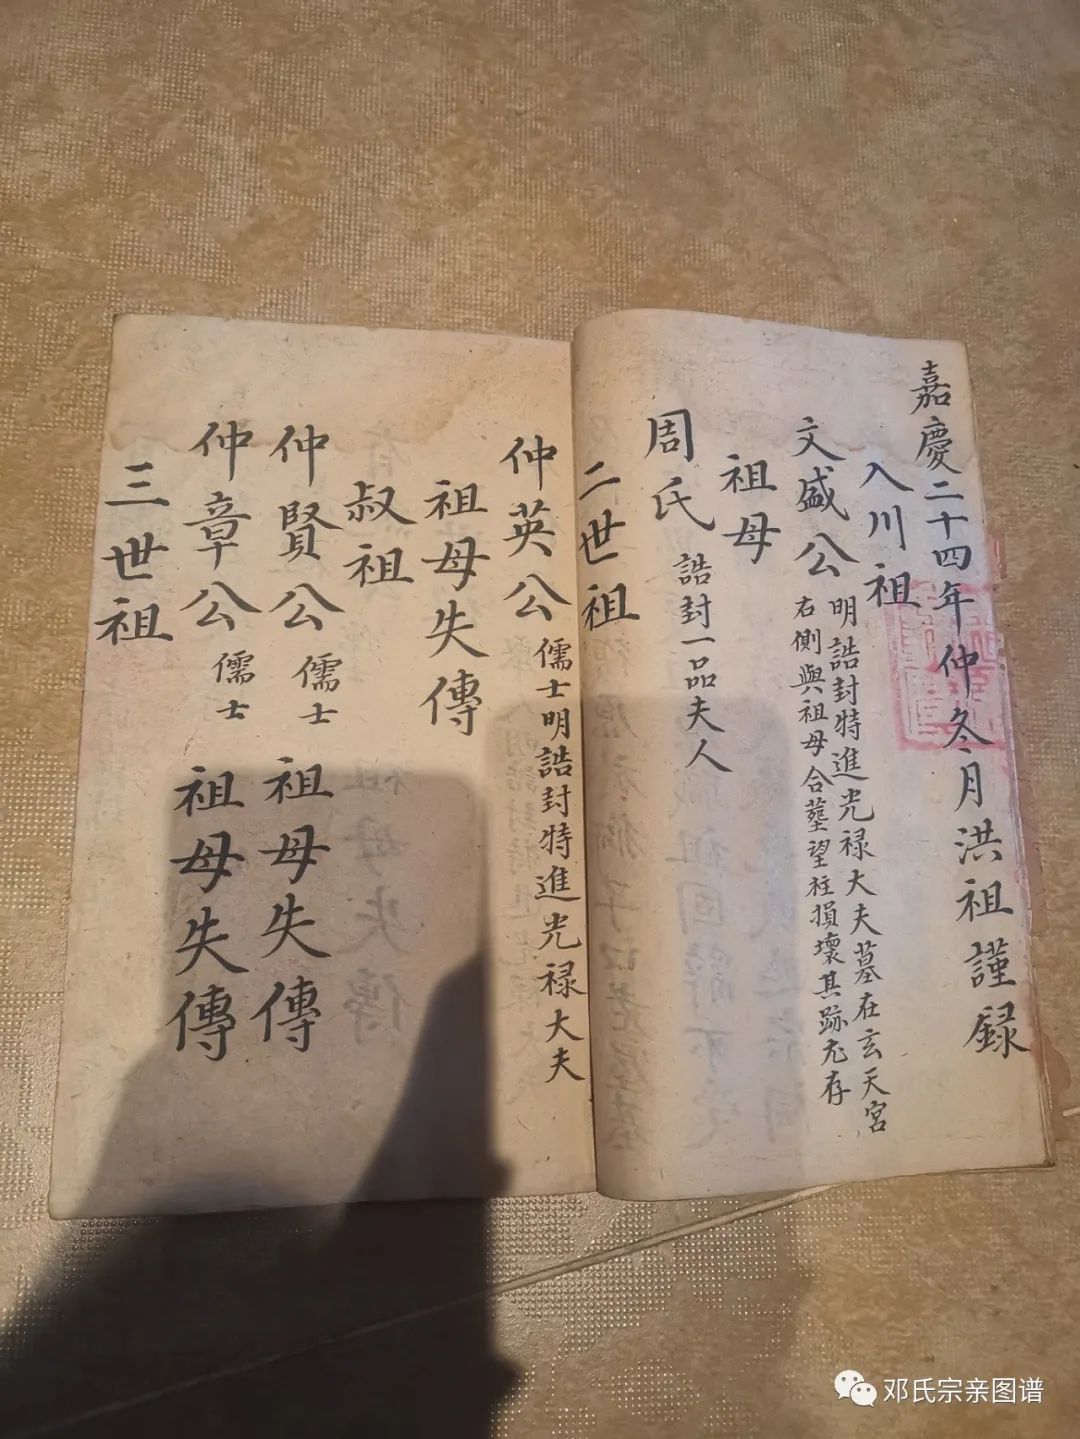 嘉慶二十四年仲冬月洪祖謹録
入川祖
文盛公
明誥封特進光禄大夫墓在玄天宮
右側與祖母合塟望柱損壞其跡尤存
祖母
周氏 誥封一品夫人
二世祖
仲英公 儒士明誥封特進光禄大夫
祖母失傳
叔祖
仲賢公 儒士 祖母失傳
仲章公 儒士 祖母失傳
三世祖
邓氏宗亲图谱